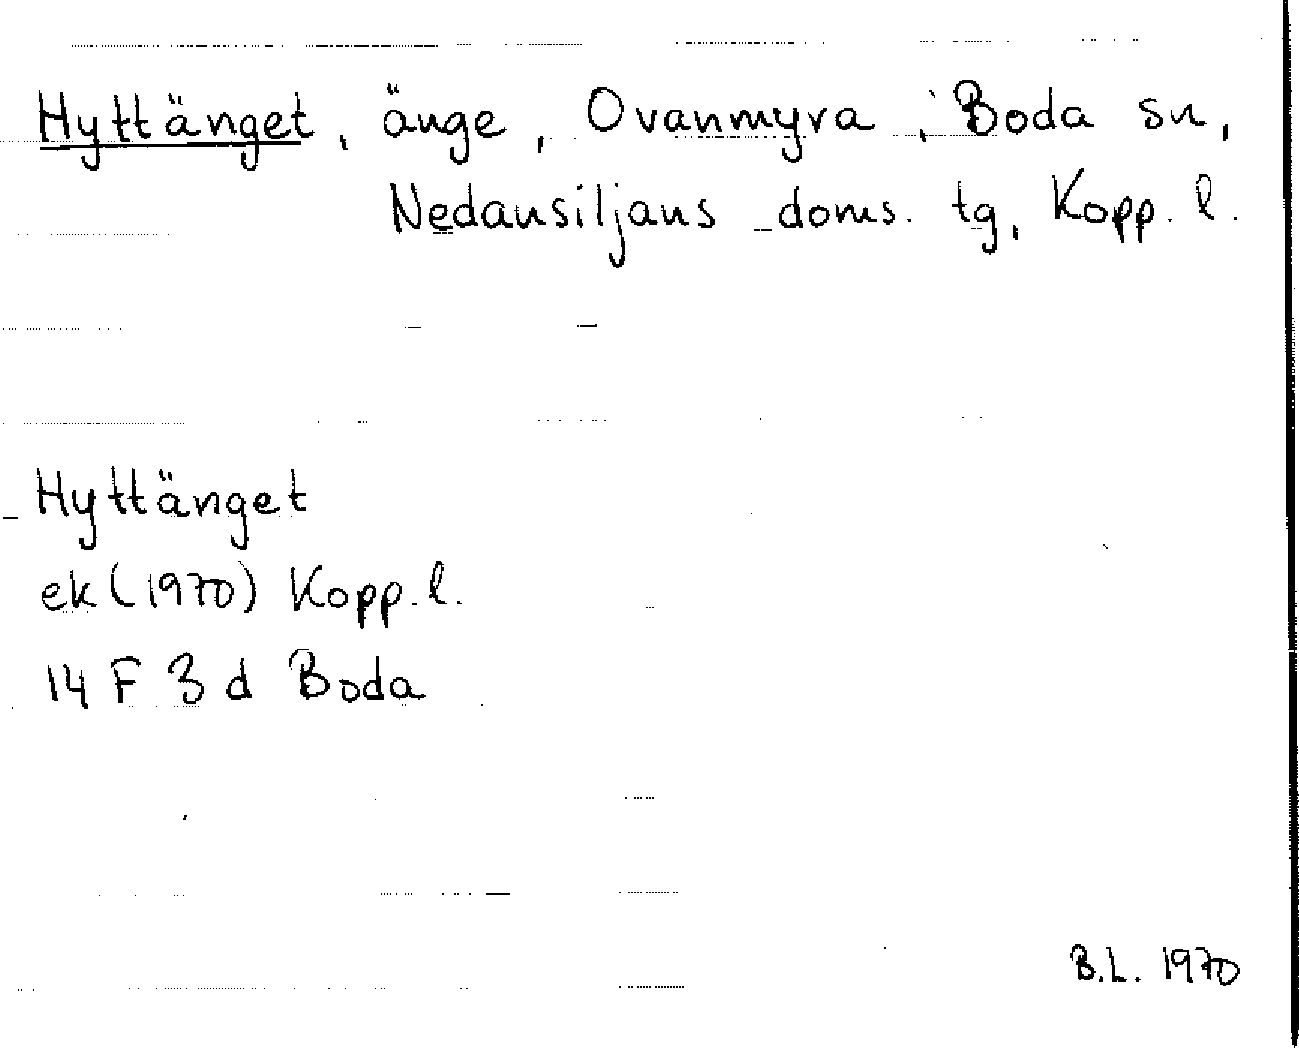 Hyttänget, änge, Ovanmyra, Boda sn,
Nedansiljans doms. tg, Kopp. l.
Hyttänget
ek (1970) Kopp. l.
14 F 3 d Boda
B.L. 1970